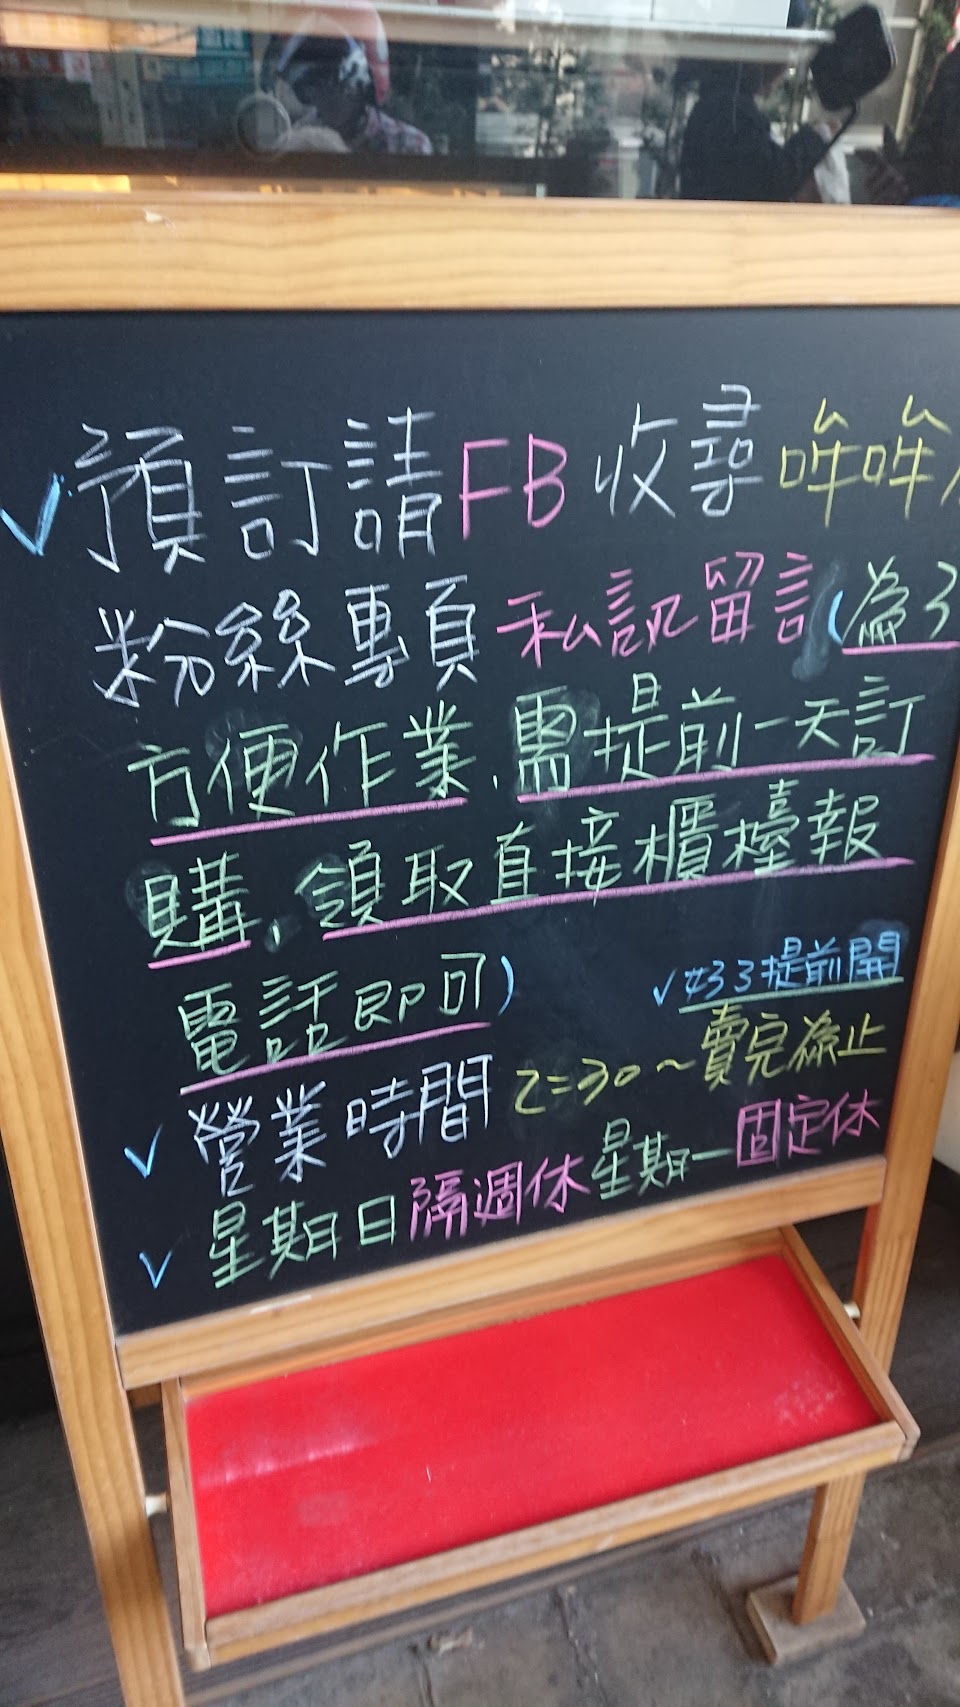 ✓預訂請FB收尋哞哞
粉絲專頁私訊留言(為了
方便作業,需提前一天訂
購,領取直接櫃檯報
電話即可)
✓提前開
✓營業時間 2=30~賣完為止
✓星期日隔週休星期一固定休